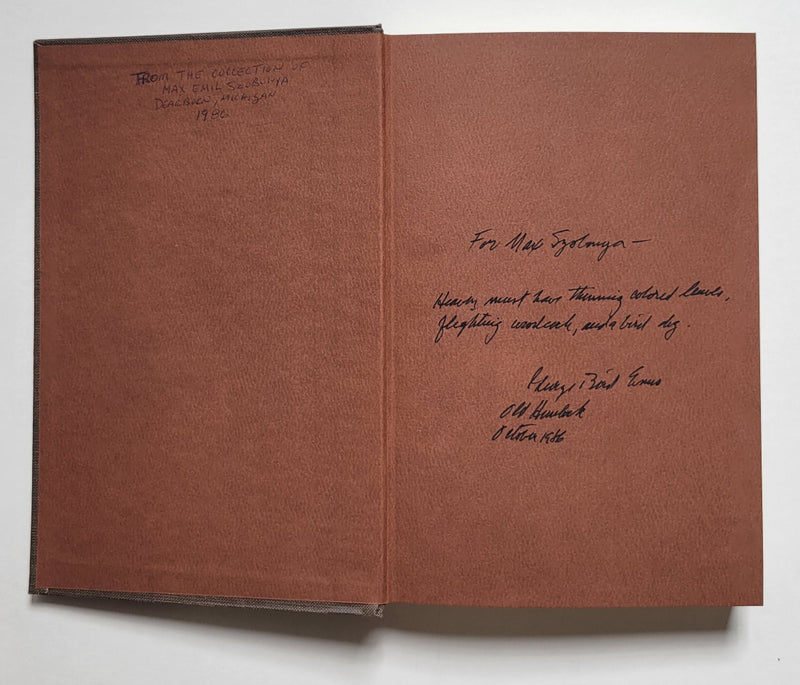 FROM THE COLLECTION OF
MAX EMIL SZOBONYA
DEARBORN, MICHIGAN
1986
For Max Szobonya —
Heaven must have thinning colored leaves,
flighting woodcock, and a bird dog.
George Bird Evans
Old Hemlock
October 1986